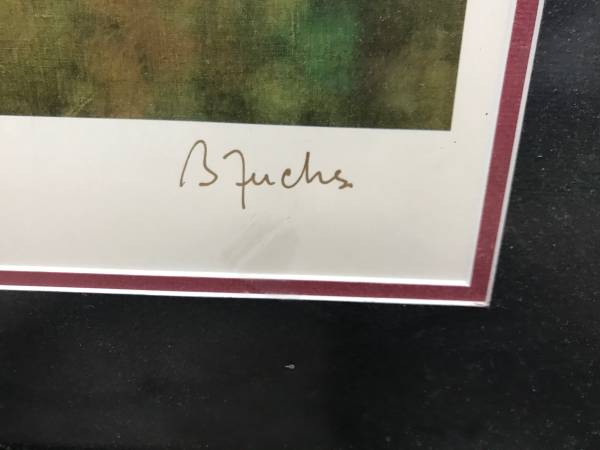 B Fuchs